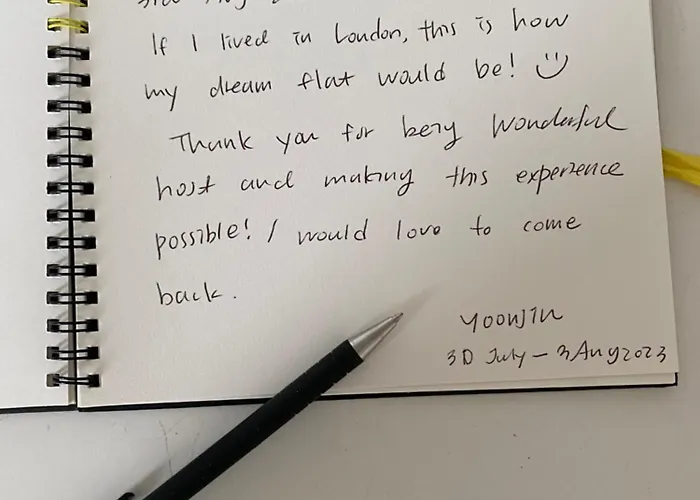 If I lived in London, this is how
my dream flat would be! :)
Thank you for being wonderful
host and making this experience
possible! I would love to come
back.
YOONJIN
30 July – 3 Aug 2023